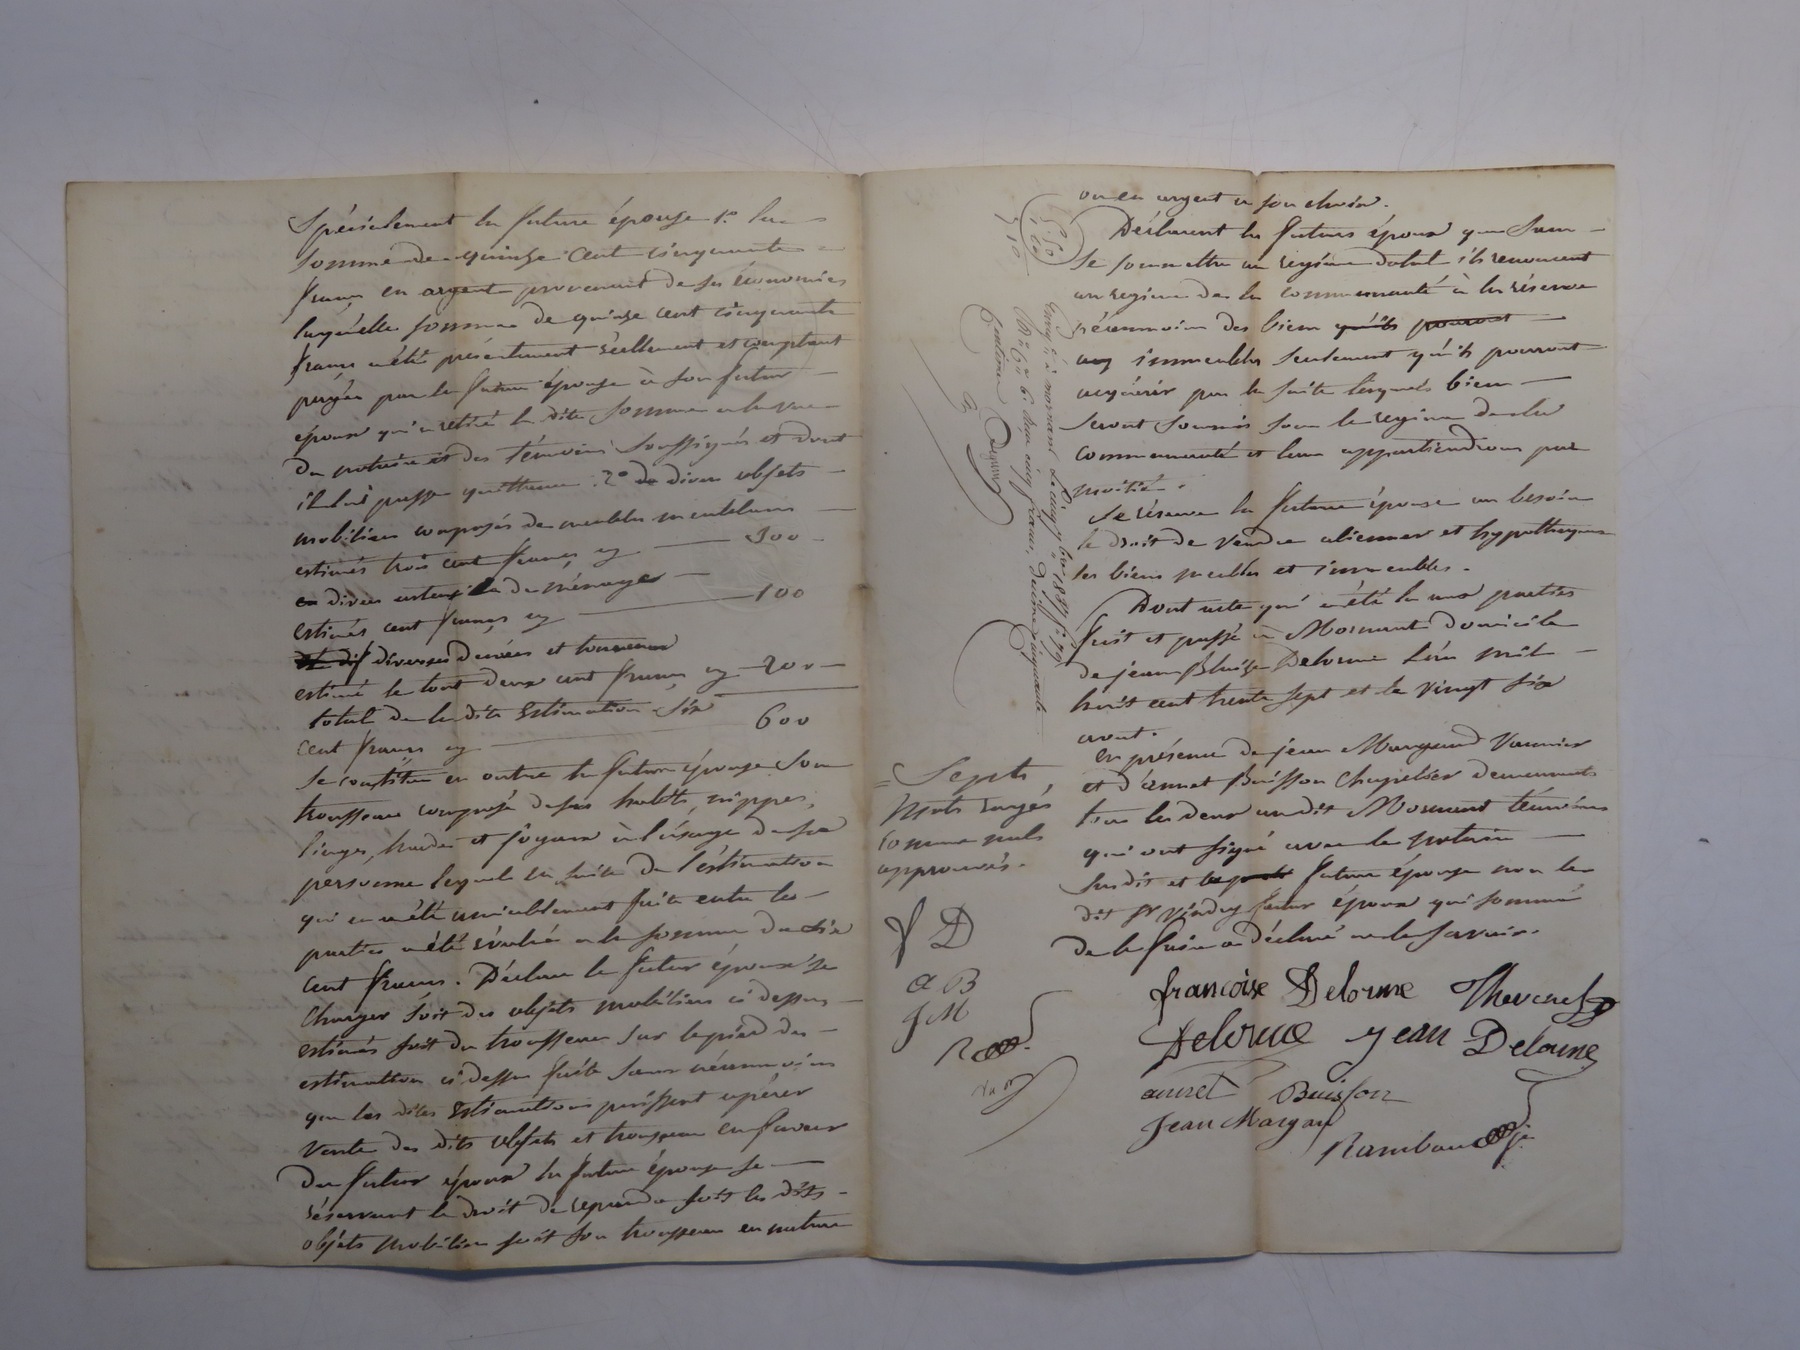 Spécialement la future épouse 1.° la
somme de quinze cent cinquante
francs en argent provenant de ses économies
laquelle somme de quinze cent cinquante
francs a été présentement réellement et comptant
payée par la future épouse à son futur
époux qui a retiré la dite somme a la vue
du notaire et des témoins soussignés et dont
il lui passe quittance. 2° de divers objets
mobiliers composés de meubles meublans
estimés trois cent francs cy 300
en divers ustensiles de ménage
estimés cent francs cy 100
diverses denrées et tonneaux
estimé le tout deux cent francs cy 200
total de la dite estimation six
cent francs cy 600
Se constitue en outre la future épouse son
trousseau composé de ses habits, nippes,
linges, hardes et joyaux à l'usage de sa
personne lequel en suite de l'estimation
qui en a été amiablement faite entre les
parties a été évalué a la somme de six
cent francs. Déclare le futur époux se
charger soit des objets mobiliers ci dessus
estimés soit du trousseau sur le pied des
estimations ci dessus faite sans néanmoins
que les dites estimations puissent opérer
vente des dits objets et trousseau en faveur
du futur époux la future épouse se
réservant le droit de reprendre soit les dits
objets mobiliers soit son trousseau en nature
ou en argent a son choix.
Déclarent les futurs époux que sans
se soumettre au regime dotal ils renoncent
au regime de la communauté à la réserve
néanmoins des biens qu'ils pouront
immeubles seulement qu'ils pourront
acquérir par la suite lesquels biens
seront soumis sous le regime de la
communauté et leur appartiendrons par
moitié.
Se réserve la future épouse au besoin
le droit de vendre aliener et hypothequer
les biens meubles et immeubles.
Dont acte qui a été lu aux parties
fait et passé à Mornant domicile
de jean Blaise Delorme L'an mil
huit cent trente sept et le vingt six
avant.
en présence de jean Margand Vannier
et d'annet Buisson Chapelier demeurants
tous les deux au dit Mornant témoins
qui ont signé avec le notaire
susdit et la future épouse non le
dit futur époux qui sommé
de le faire a déclaré ne le savoir.
françoise Delorme Thevenet
Delorme jean Delorme
annet Buisson
Jean Margan
Rambaud
Sept
Mots rayés
comme nuls
approuvés.
f D
a B
J M
R
5.50
3 10
Enreg.té à mornant le cinq 1837 f.° 179
R.° C.es 6. Reçu cinq francs, Decime cinquante
Centimes